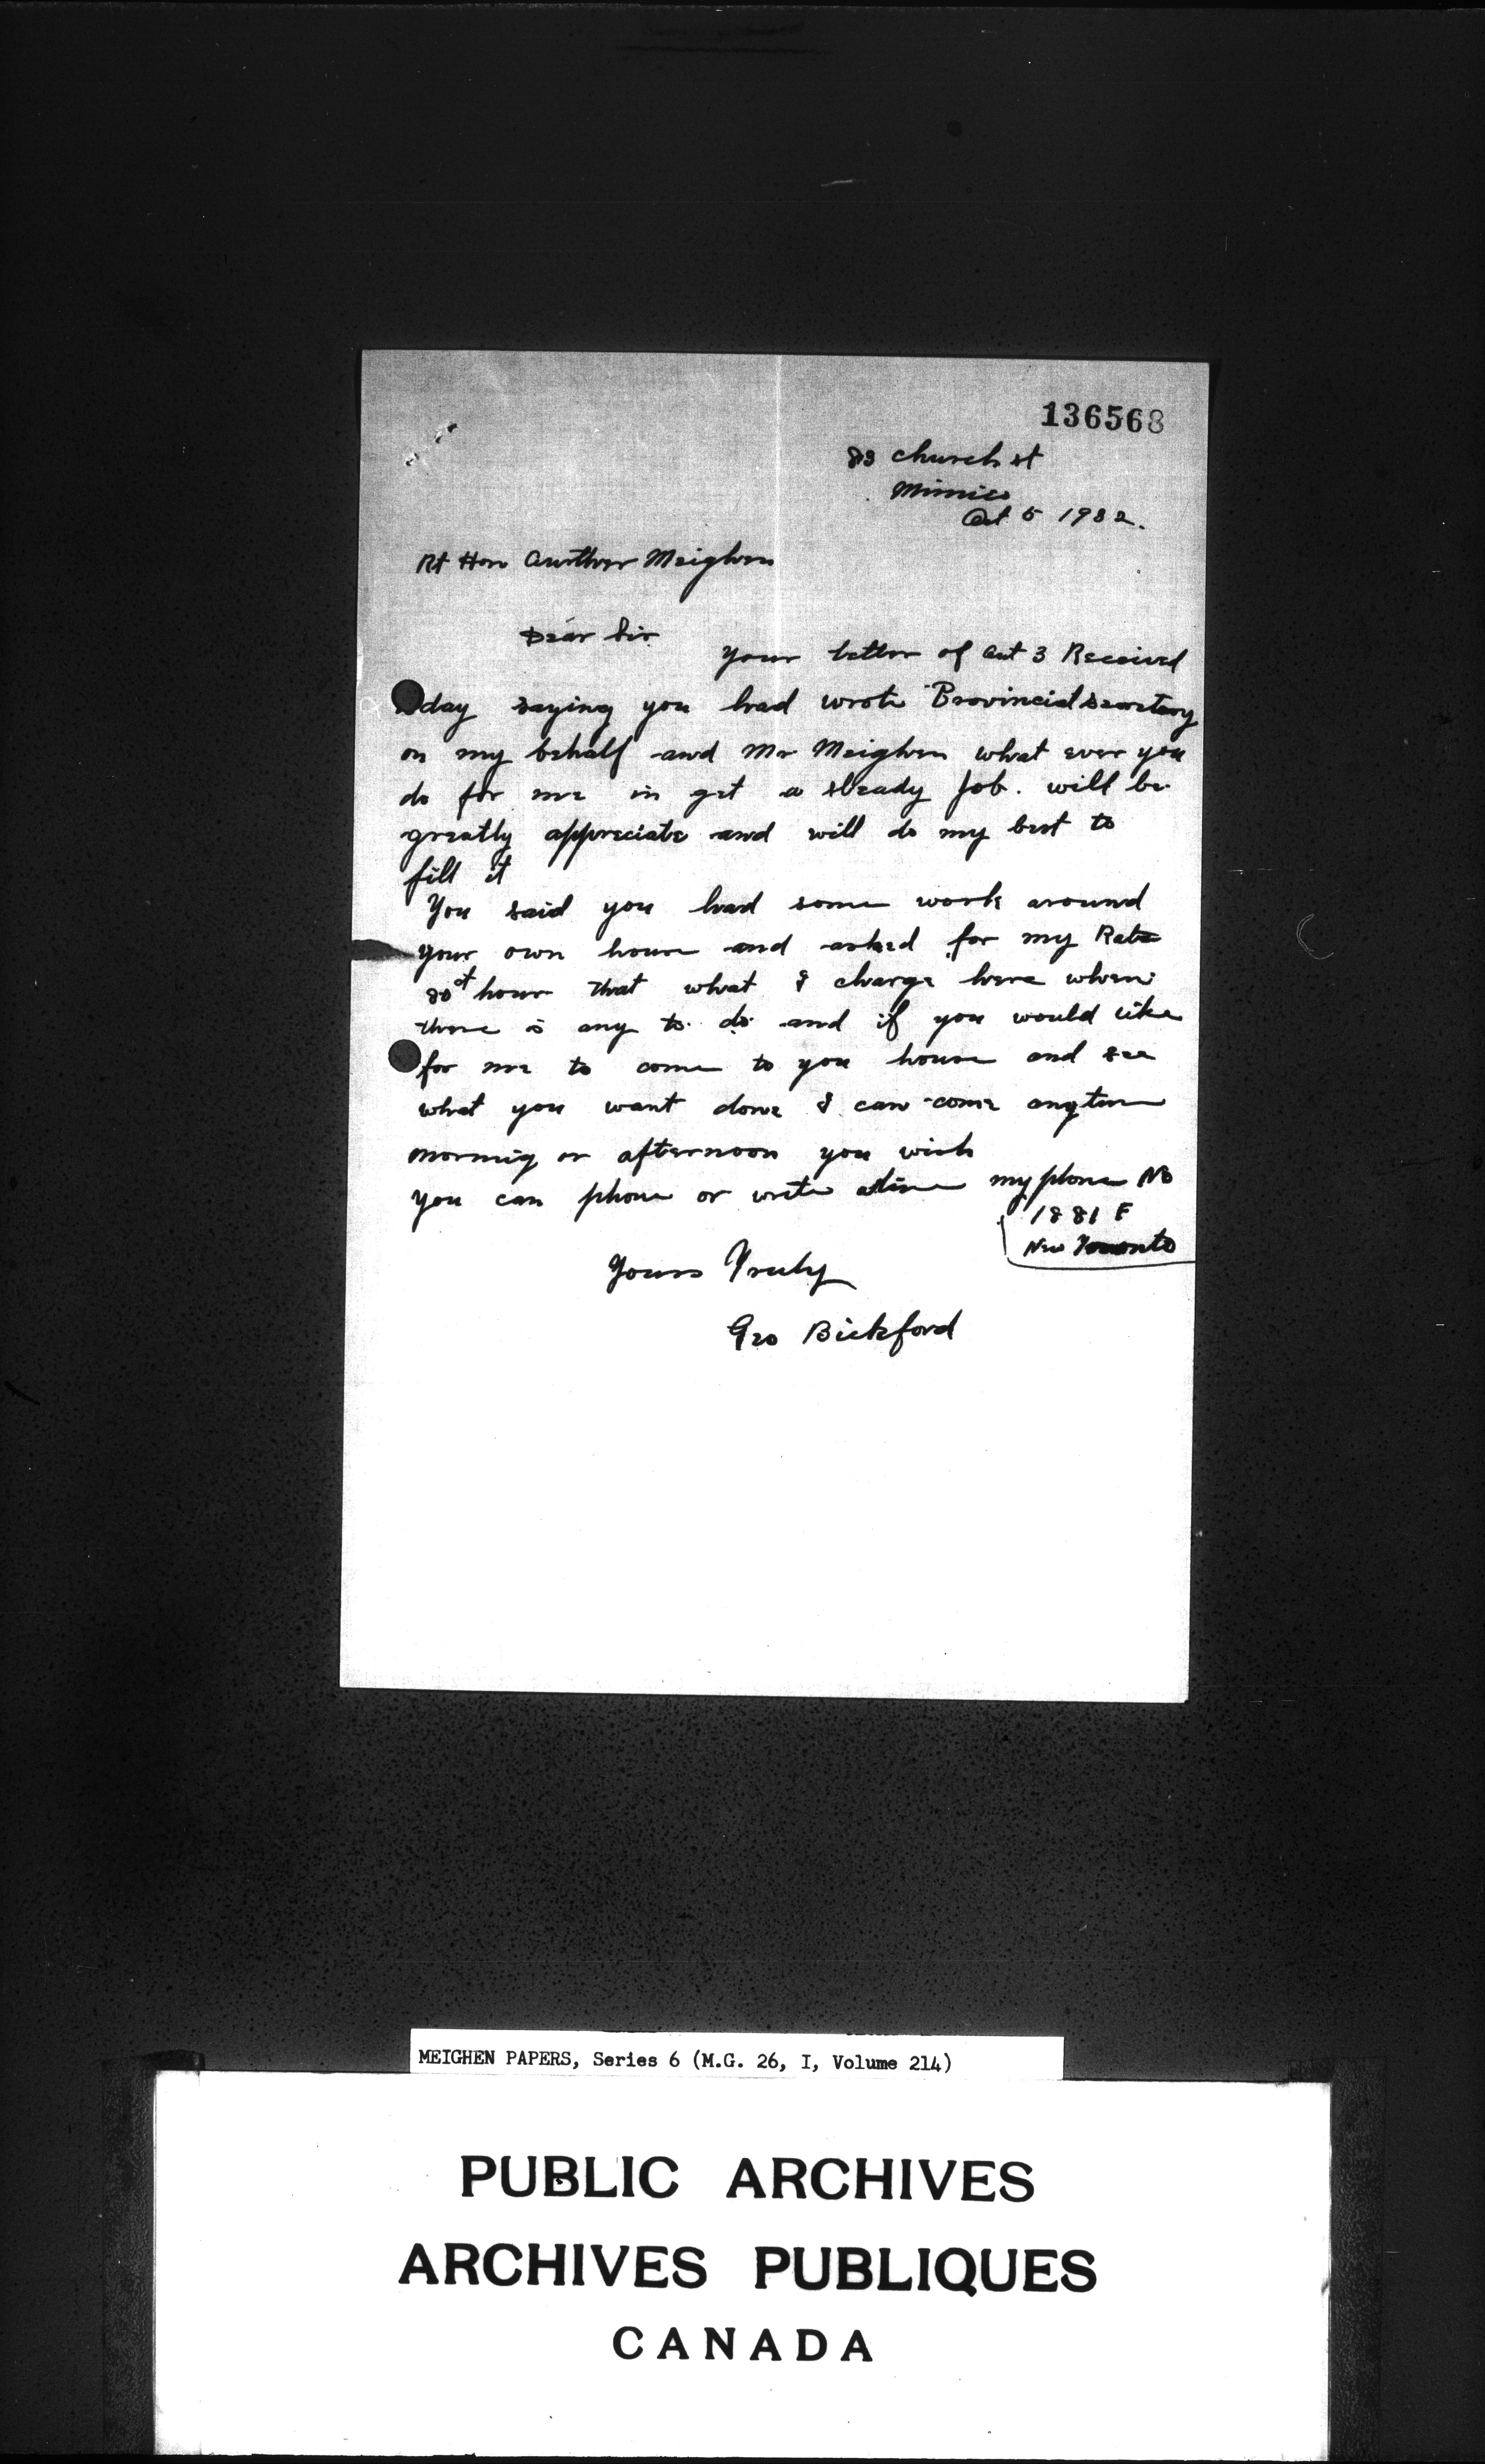 136568
83 Church st
Mimico
Oct 5 1932.
Rt Hon Aurther Meighen
Dear Sir
your letter of Oct 3 Received
day saying you had wrote Provincial Secretary
on my behalf and Mr Meighen what ever you
do for me in get a steady job. will be
greatly appreciate and will do my best to
fill it
You said you had some work around
your own house and asked for my Rate
hour that what I charge here when
there is any to do and if you would like
for me to come to you house and see
what you want done I can come anytime
morning or afternoon you wish
you can phone or write a time my phone No
1881 F
New Toronto
Yours Truly
Geo Bickford
MEIGHEN PAPERS, Series 6 (M.G. 26, I, Volume 214)
PUBLIC ARCHIVES
ARCHIVES PUBLIQUES
CANADA